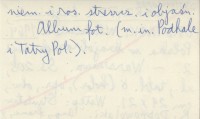 niem. i ros. streszcz. i objaśn.
Album fot. (m.in. Podhale
i Tatry Pol.).